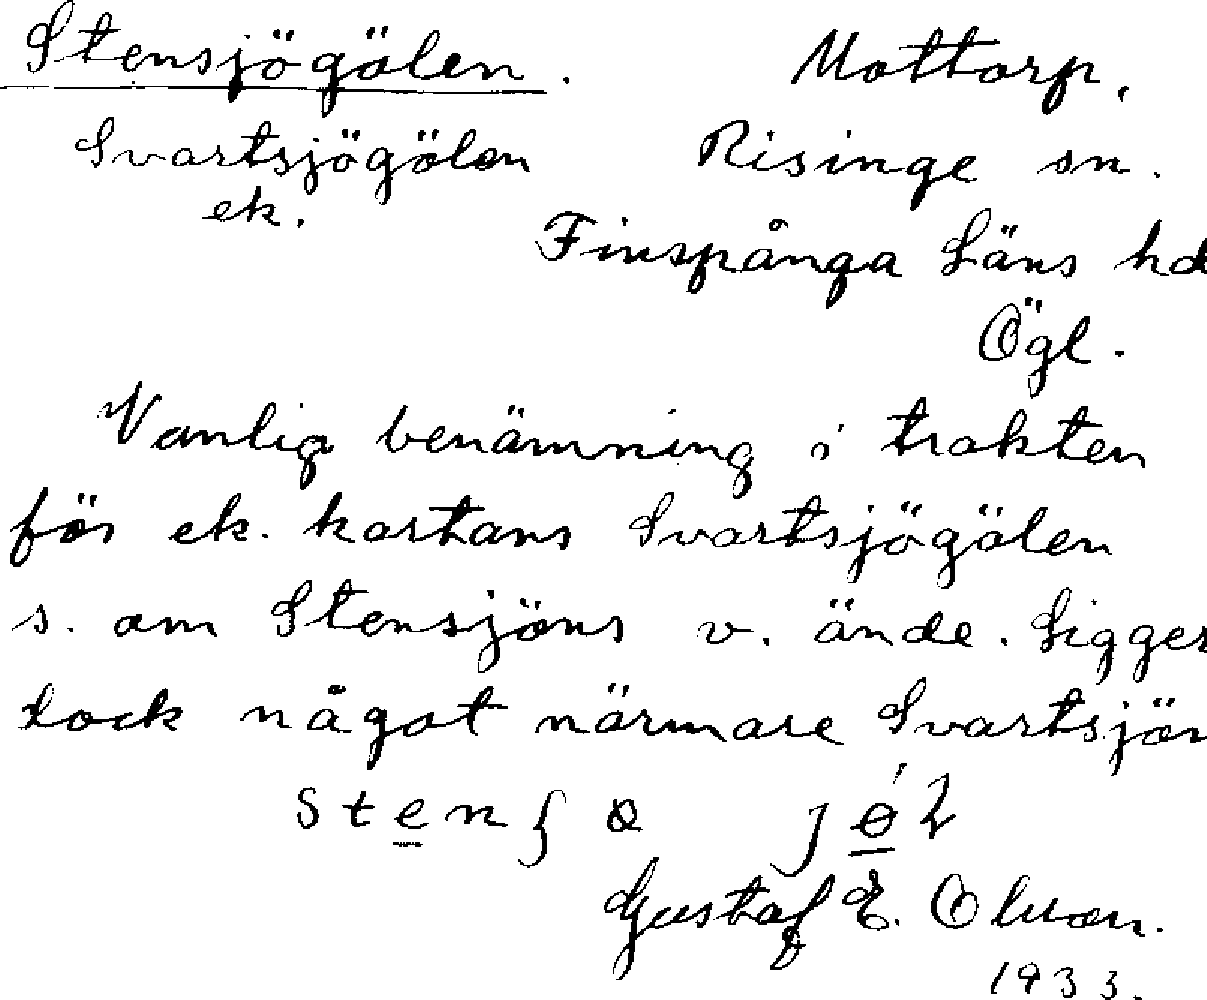 Stensjögölen. Mottorp,
Svartsjögölen Risinge sn.
ek. Finspånga Läns hd
Ögl.
Vanlig benämning i trakten
för ek. kartans Svartsjögölen
s. om Stensjöns v. ände. Ligger
dock något närmare Svartsjön
Gustaf E.
1933.